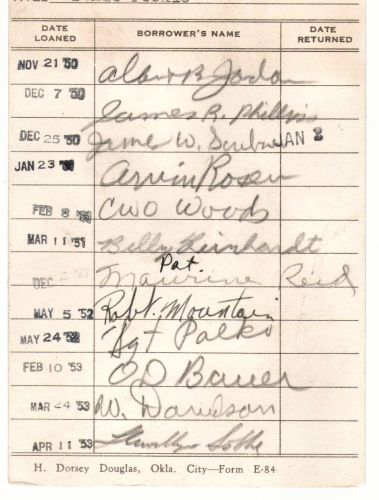 DATE LOANED BORROWER'S NAME DATE RETURNED
NOV 21 '50 Albert R. Jordan
DEC 7 '50 James R. Phillips
DEC 25 '50 James W. JAN 2
JAN 23 Arvin Rosen
FEB 8 CWO Woods
MAR 11 '51 Billy Reinhardt
Pat.
DEC Maurine Reid
MAY 5 '52 Robt. Mountain
MAY 24 '52 Sgt Palko
FEB 10 '53 OD Bauer
MAR 24 '53 W. Davidson
APR 11 '53
H. Dorsey Douglas, Okla. City—Form E-84